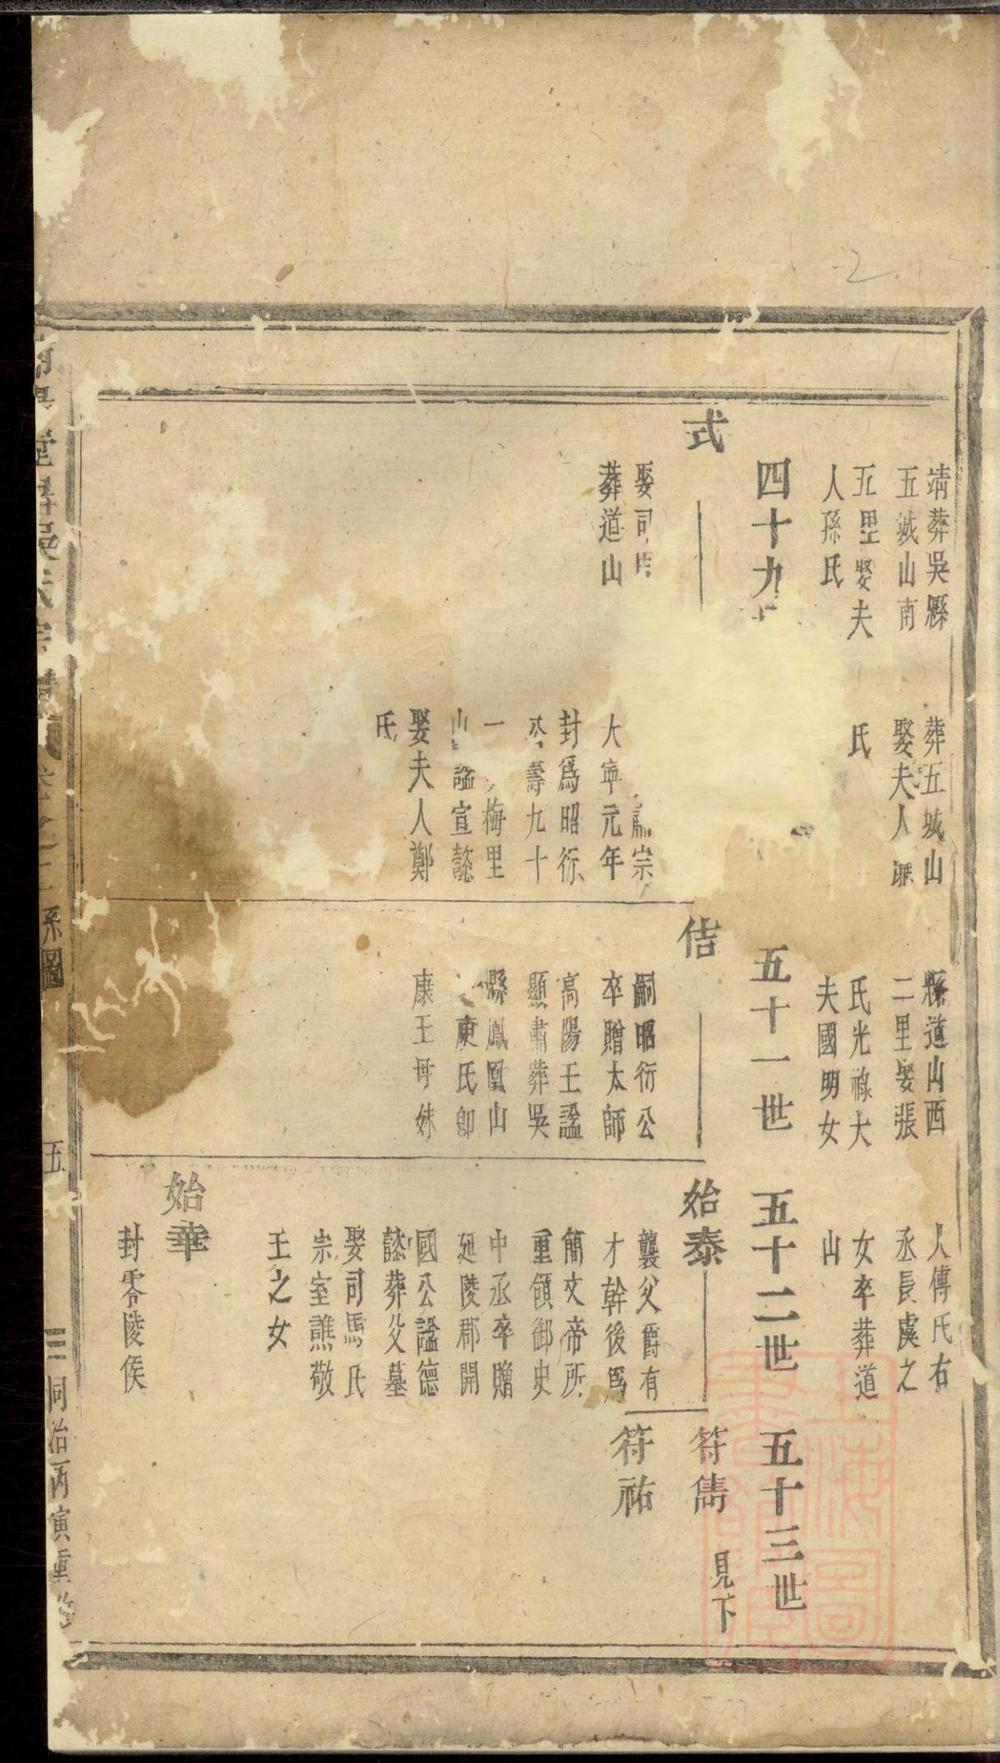 靖葬吳縣
五城山南
五里娶夫
人孫氏
葬五城山
娶夫人
氏
縣道山西
二里娶張
氏光祿大
夫國明女
人傅氏右
丞長虞之
女卒葬道
山
四十九
五十一世
五十二世
五十三世
式
娶司
葬道山
宗
大寧元年
封爲昭衍
壽九十
一 梅里
山 謚宣懿
娶夫人鄭
氏
佶
嗣昭衍公
卒贈太師
高陽王謚
顯肅葬吳
縣鳳凰山
庾氏卽
康王母妹
始泰
襲父爵有
才幹後爲
簡文帝所
重領御史
中丞卒贈
延陵郡開
國公謚德
懿葬父墓
娶司馬氏
宗室譙敬
王之女
始華
封零陵侯
符雋
見下
符祐
系圖
五
三
同治丙寅重修
上海圖書館藏